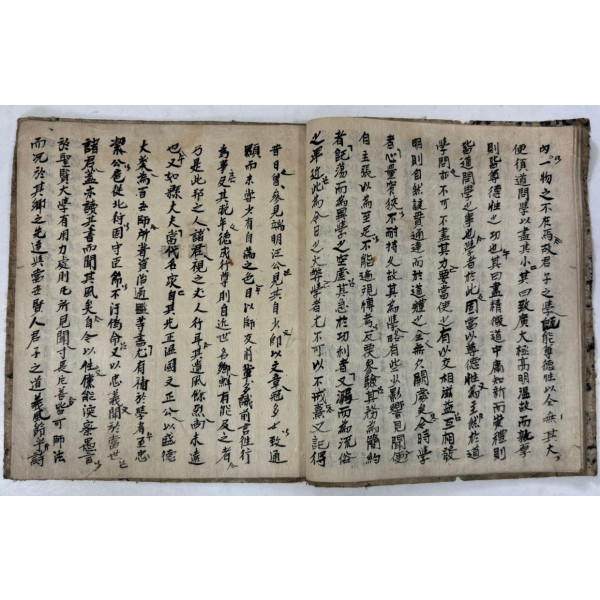 內一物之不在焉故君子之學旣能尊德性以全其大
便須道問學以盡其小其曰致廣大極高明溫故而敦厚
則皆尊德性之功也其曰盡精微道中庸知新而崇禮則
皆道問學之事也學者於此固當以尊德性爲主然於道
學問亦不可不盡其力要當使之有以交相滋益互相發
明則自然該貫通達而於道體之全無欠闕處矣今時學
者心量窄狹不耐持久故其爲學略有些少影響見聞便
自主張以爲至足不能遍觀博考反覆參驗其務爲簡約
者旣蕩而爲異學之空虛其急於功利者又溺而爲流俗
之卑近此爲今日之大弊學者尤不可以不戒熹又記得
昔日曾參見端明汪公見其自少卽以文章冠多士致通
顯而未嘗少有自滿之色日以師友前輩多識前言往行
爲事及其晩年德成行尊則自近世名卿鮮有能及之者
乃是此邦之人諸君視之丈人行耳其遺風餘烈尙未遠
也又如縣大夫當代名家自其先正溫國文正公以盛德
大業爲百世師所著資治通鑑等書尤有補於學者至忠
潔公扈從北狩固守臣節不汚僞命又以忠義聞於當世
諸君蓋亦讀其書而聞其風矣自今以往儻能深察愚言
於聖賢大學有用力處則凡所見聞寸長片善皆可師法
而況於其鄕之先達與當世賢人君子之道義風節乎詩